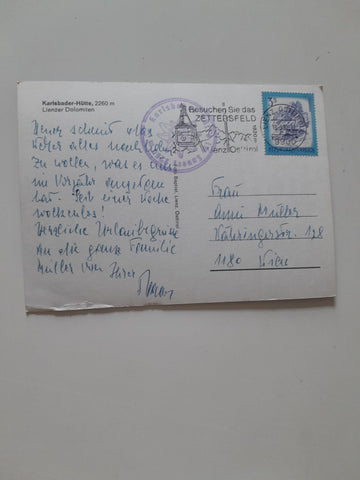 Karlsbader-Hütte, 2260 m
Lienzer Dolomiten
Heuer scheint das
Wetter alles nachholen
zu wollen, was es uns
im Vorjahr angetan
hat. Seit einer Woche
wolkenlos!
Herzliche Urlaubsgrüsse
An die ganze Familie
Müller von Ihrer
Besuchen Sie das
ZETTERSFELD
Lienz/Osttirol
Frau
Anni Müller
Währingerstr. 128
1180 Wien